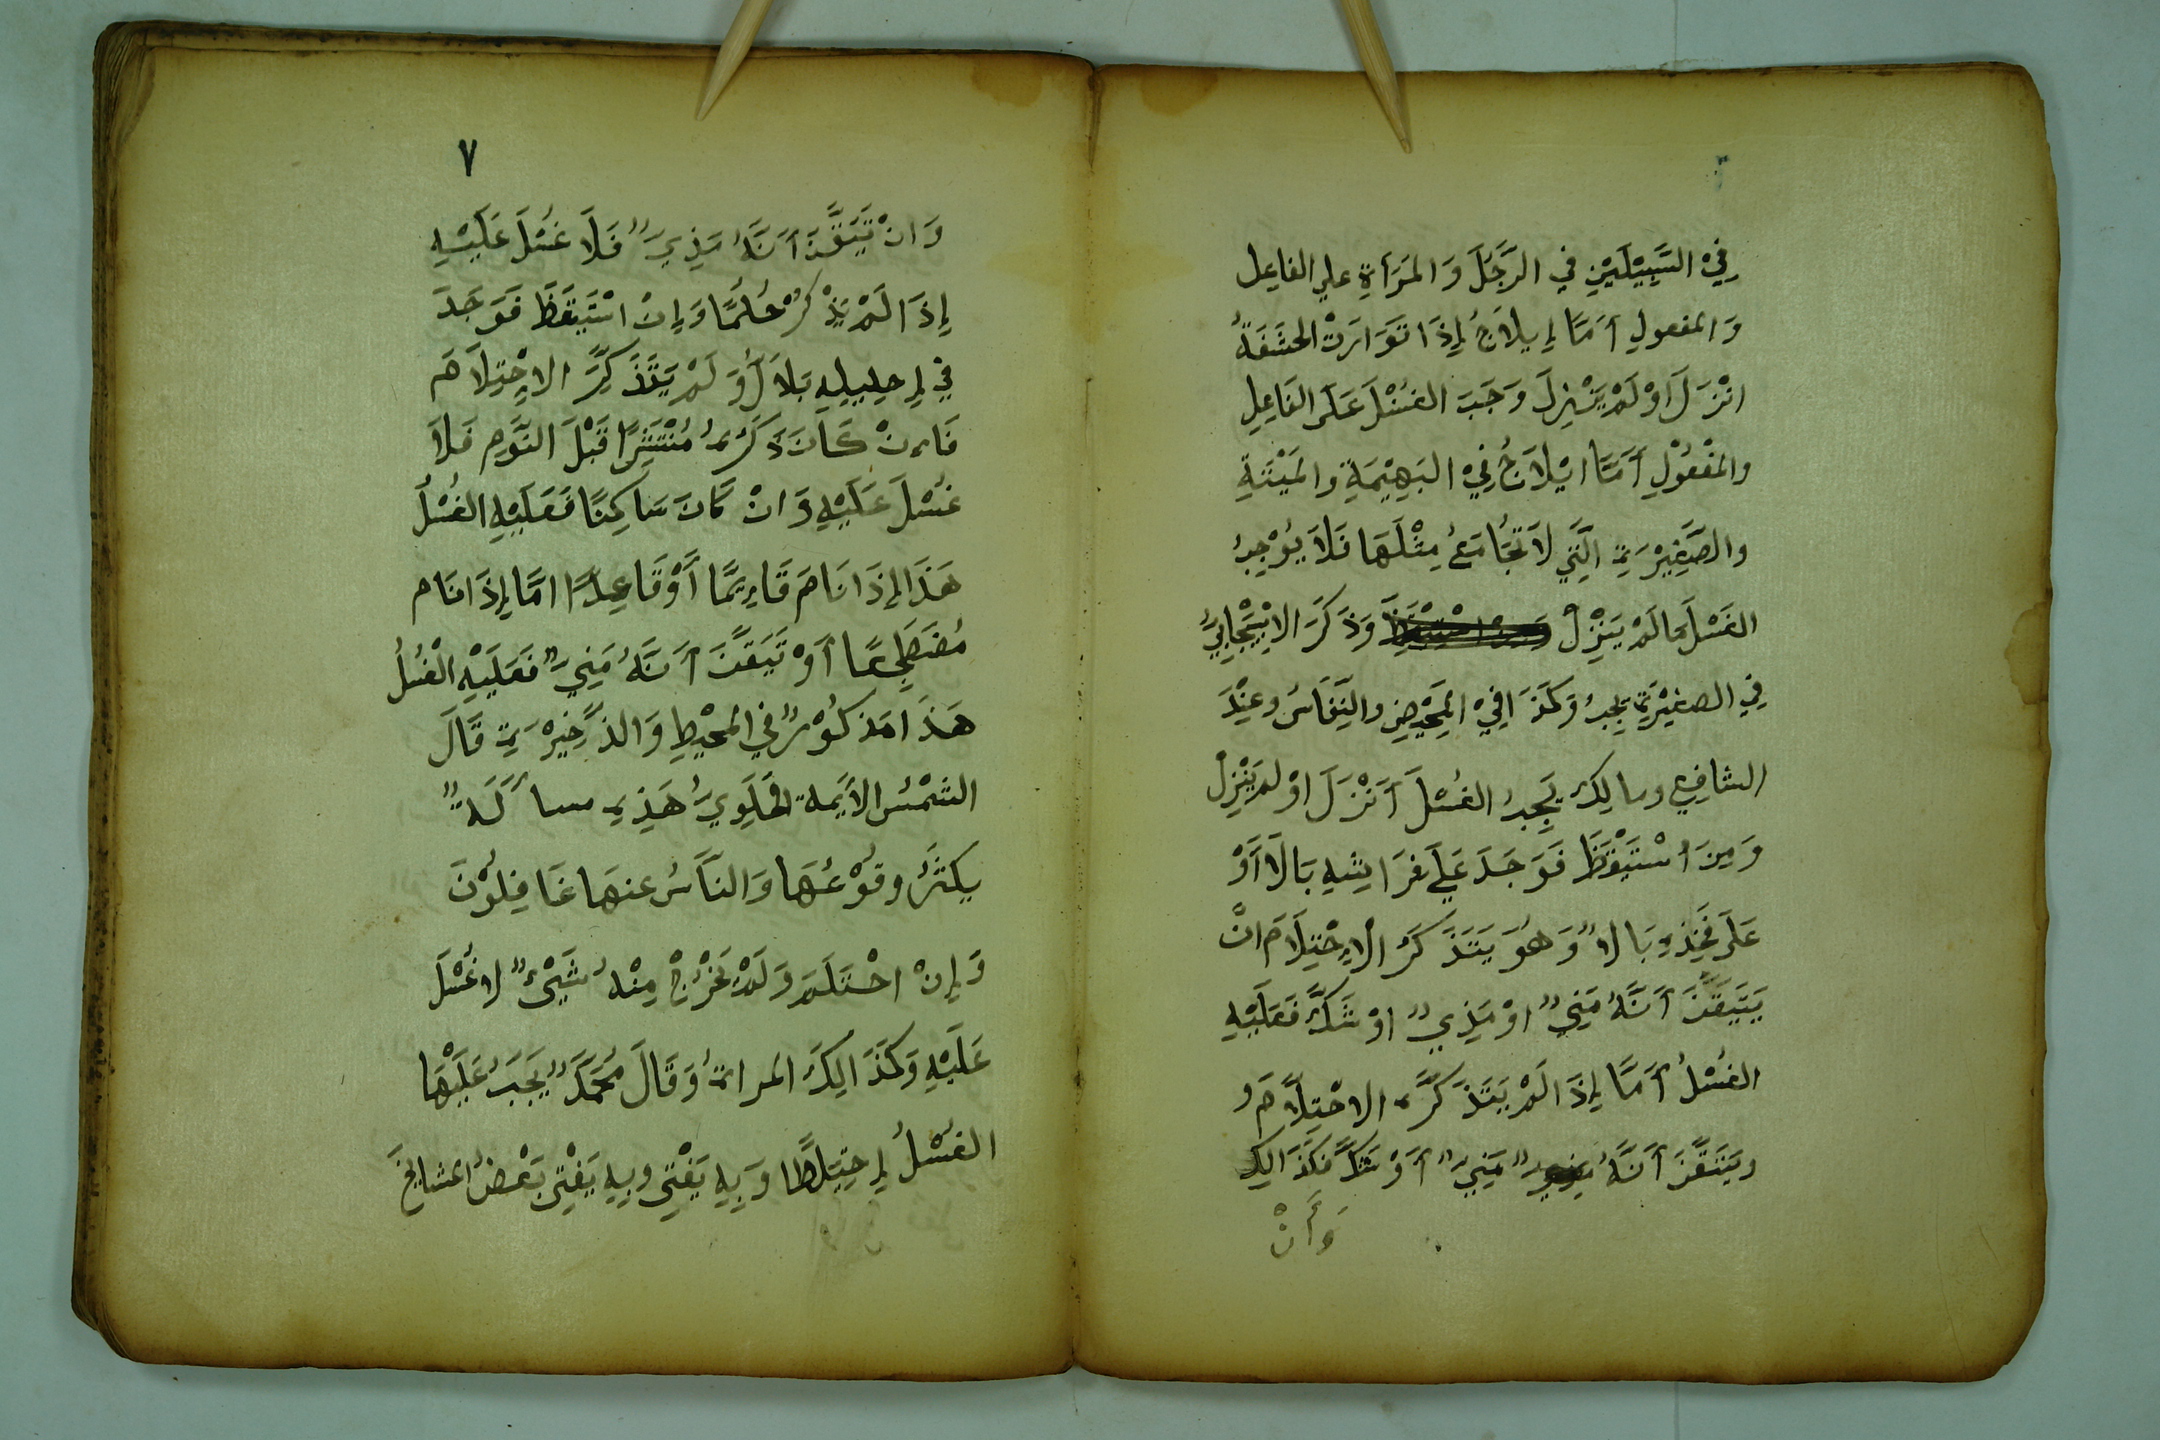 فِيْ السَّبِيْلَيْنِ فِي الرَّجَلَ وَالمَرَأةِ علي الفاعِل
وَالمفعولِ أَمَّا إيلاَجُ إِذَا تَوَارَتْ الحشَفَةُ
انْزَلَ اوْ لَمْ يَنْزِلَ وَجَبَ الغسْلَ عَلَى الفَاعِلِ
والمفْعُوْلِ أَمَّا ايْلاَجُ فِيْ البَهِيْمَةِ والمَيْتَةِ
والصَّغِيْرَةِ الَّتِي لاَ تُجَامَعُ مِثْلَهَا فَلاَ يُوْجِبُ
الغَسْلَ مَا لَمْ يَنْزِلْ وَذَكَرَ الاِسْبَيْجَابِيُّ
فِي الصغيْرَةِ يَجِبُ وَكَذَا فِيْ المَحِيْضِ والنِّفَاسُ وعِنْدَ
الشافِعِي ومالِكْ يَجِبُ الغُسْلَ أَنْزَلَ اوْ لم يَنْزِلْ
وَمِنَ اسْتَيْقَظَ فَوَجَدَ عَلَي فرَاشِهِ بَالَا أَوْ
عَلَى فَخِذِهِ بَالا" وَهُوَ يَتَذَكَرَ الاِحْتِلَامَ انْ
يَتَيَقَّنَ أَنَّهُ مَنِيٌّ اوْ مَذِيٌّ اوْ شَكَّ فَعَلَيْهِ
الغُسْلُ أَمَّا إِذَا لَمْ يَتَذَكَّرَ الاحْتِلَامَ و
ويَتَقَّنَ أَنَّهُ مَنِيٌّ أَوْ شَكَّ فَكَذَالِكَ
وَأَنْ
٧
وَانْ تَيَقَّنَ أَنَّهُ مَذِيٌّ فَلَا غُسْلَ عَلَيْهِ
إِذَا لَمْ يَذْكُرْ حُلُمًا وَإِنْ اسْتَيقَظَ فَوَجَدَ
فِي إِحلِيلِهِ بَلاَلًا وَ لَمْ يَتَذَكِرَّ الاِحْتِلاَمَ
فَاءِنْ كَانَ ذَكَرُهُ مُنْتَشِرًا قَبْلَ النَّوْمِ فَلاَ
غُسْلَ عَلَيْهِ وَانْ كَانَ سَاكِنًا فَعَلَيْهِ الغُسْلُ
هَذَا إِذَا نَامَ قَاءِمًا أَوْ قَاعِدًا امَّا إِذَا نَام
مُضطَجِعًا أَوْ تَيَقَّنَ أَنَّهُ مَنِيٌّ فَعَلَيْهِ الْغُسْلُ
هَذَا مَذكُوْرٌ فِي المحِيْطِ وَالذَّخِيْرَةِ قَالَ
الشمْسُ الأَيِمة الحَلَوِيُّ هَذِهِ مسأَلَةٌ
يكثَرُ وقُوْعُهَا وَالنَّاسُ عنهَا غَافِلُوْنَ
وَإِنْ احْتَلَمَ وَلَمْ يَخْرُجْ مِنْهُ شَيْئٌ لا غُسْلَ
عَلَيْهِ وَكَذَالِكَ المراةُ وَقَالَ مُحَمَّدٌ يَجَبُ عَلَيْهَا
الغُسْلُ إِحتِيَاطًا وَبِهِ يَفْتِي وبِهِ يَفْتِي بَعْضُ المَشَايِخَ